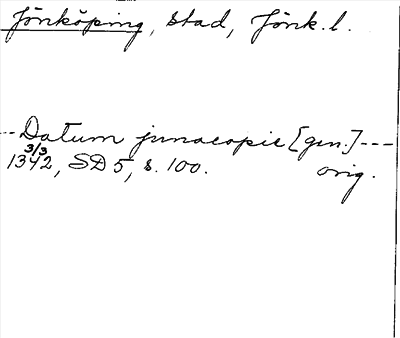 Jönköping, stad, Jönk. l.
--Datum junacopie [gen.]---
3/3
1342, SD 5, s. 100. orig.